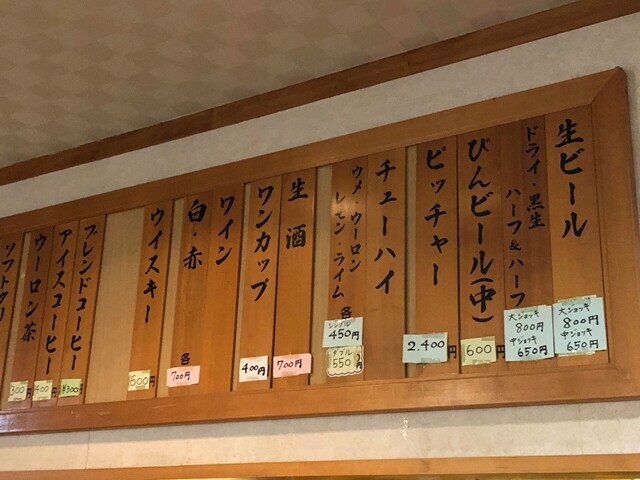 生ビール
大ジョッキ
800円
中ジョッキ
650円
ドライ・黒生
ハーフ&ハーフ
大ジョッキ
800円
中ジョッキ
650円
びんビール(中)
600円
ピッチャー
2.400円
チューハイ
ウメ・ウーロン
レモン・ライム
各
シングル
450円
ダブル
550円
生酒
700円
ワンカップ
400円
ワイン
白・赤
各
700円
ウイスキー
600円
ブレンドコーヒー
¥300円
アイスコーヒー
400円
ウーロン茶
300円
ソフト